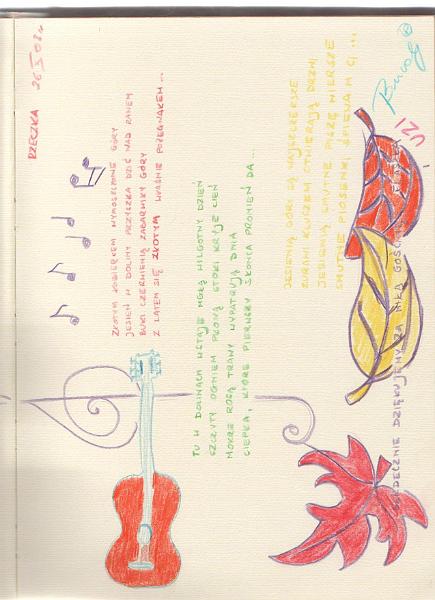 RZECZKA 26 X 08r.
ZŁOTYM KOBIERCEM WYMOSZCZONE GÓRY
JESIEŃ W DOLINY PRZYSZŁA DZIŚ NAD RANEM
BUKI CZERWIENIĄ ZABARWIŁY GÓRY
Z LATEM SIĘ ZŁOTYM WŁAŚNIE POŻEGNAŁEM ...
TU W DOLINACH WSTAJE MGŁĄ WILGOTNY DZIEŃ
SZCZYTY OGNIEM PŁONĄ STOKI KRYJE CIEŃ
MOKRE ROSĄ TRAWY WYPATRUJĄ DNIA
CIEPŁA, KTÓRE PIERWSZY SŁOŃCA PROMIEŃ DA...
JESIENIĄ GÓRY SĄ NAJSZCZERSZE
ŻURAWI KLUCZEM OTWIERAJĄ DRZWI
JESIENIĄ SMUTNE PISZĘ WIERSZE
SMUTNE PIOSENKI ŚPIEWAM CI ...
SERDECZNIE DZIĘKUJEMY ZA MIŁĄ
UZI